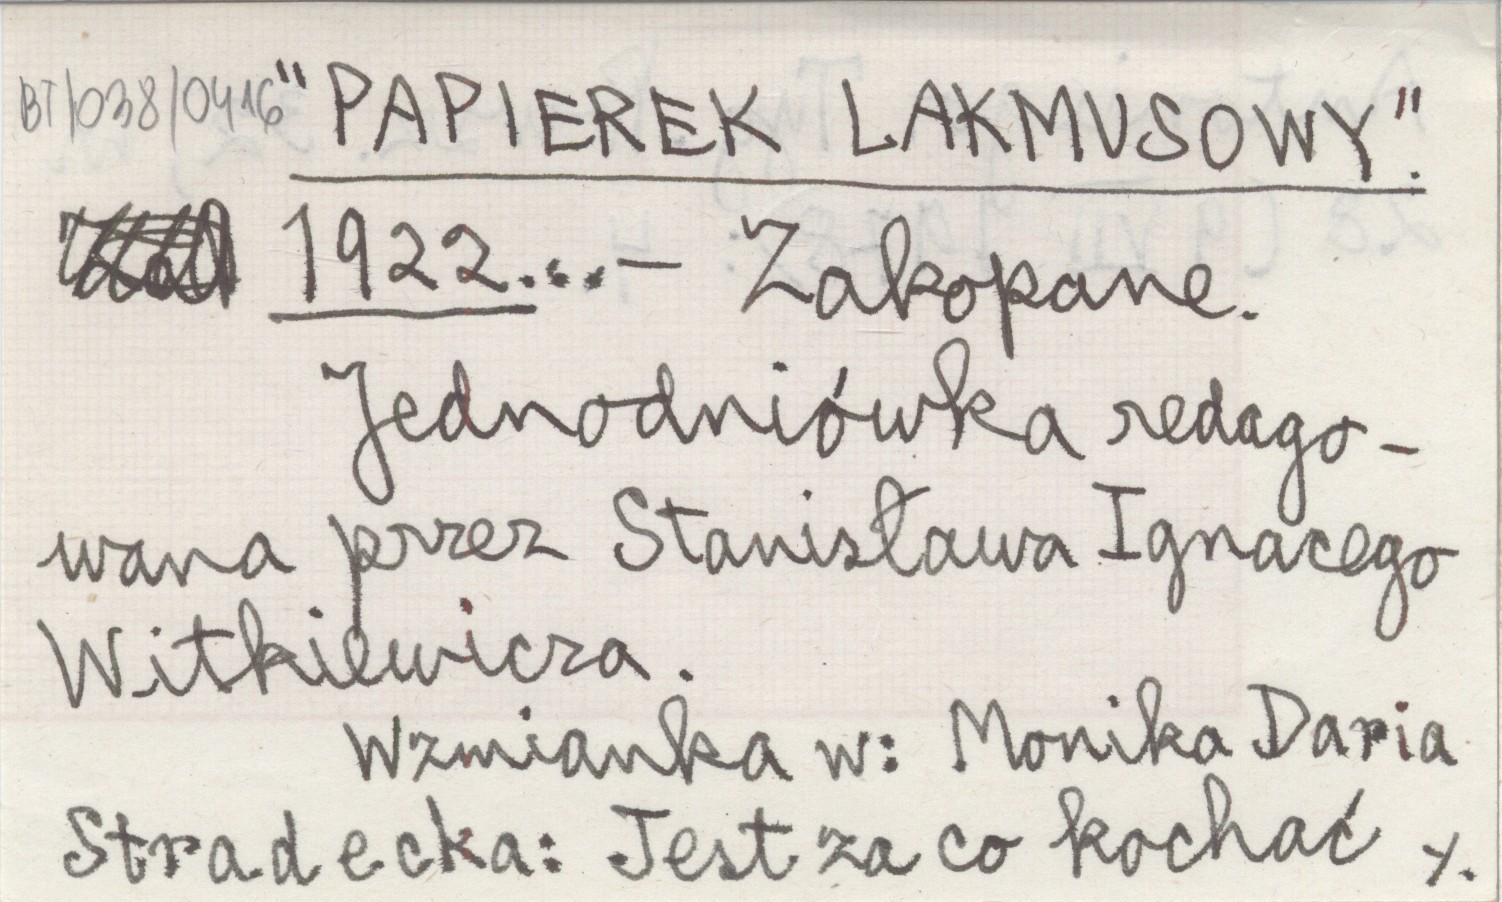 BT/038/0416 "PAPIEREK LAKMUSOWY".
1922...- Zakopane.
Jednodniówka redago-
wana przez Stanisława Ignacego
Witkiewicza.
Wzmianka w: Monika Daria
Stradecka: Jest za co kochać y.